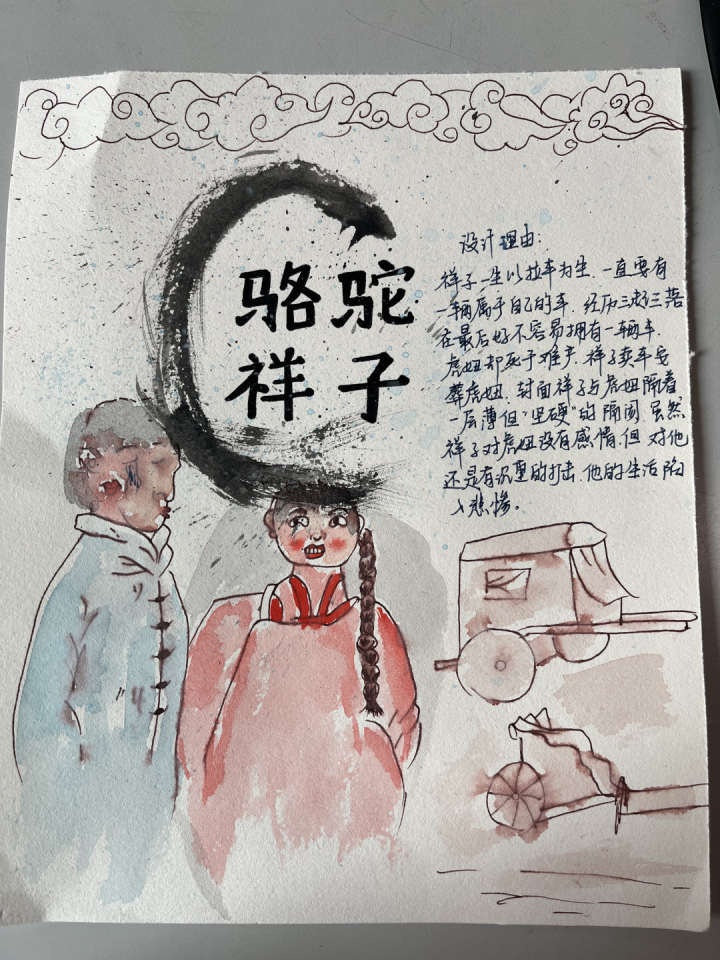 骆驼
祥子
设计理由:
祥子一生以拉车为生.一直要有
一辆属于自己的车.经历三起三落
在最后好不容易拥有一辆车.
虎妞却死于难产.祥子卖车安
葬虎妞.封面祥子与虎妞隔着
一层薄但"坚硬"的隔阂.虽然
祥子对虎妞没有感情.但对他
还是有沉重的打击.他的生活陷
入悲惨。